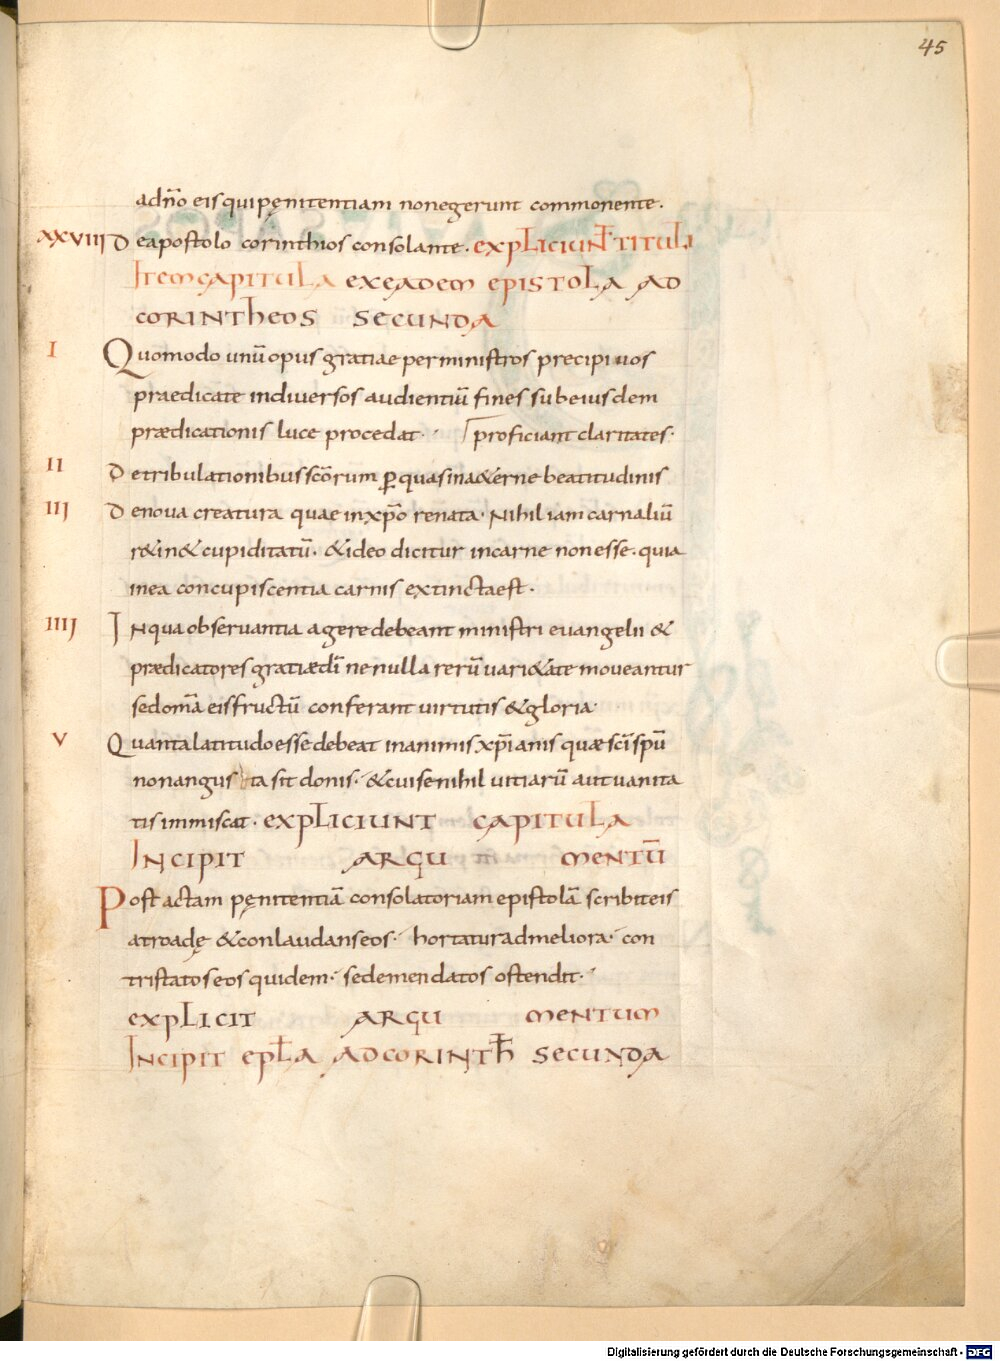 45
adn̄o eis qui pęnitentiam non egerunt commonente.
XXVIII De apostolo corinthios consolante. EXPLICIUNT TITULI
ITEM CAPITULA EX EADEM EPISTOLA AD
CORINTHEOS SECUNDA
I Quomodo unū opus gratiae per ministros precipiuos
praedicate in diuersos audientiū fines sub eiusdem
prædicationis luce procedat. proficiant claritates.
II De tribulationibus scōrum ꝑ quas in a&erne beatitudinis
III De noua creatura quae in xp̄o renata. Nihil iam carnaliū
r&in& cupiditatū. & ideo dicitur in carne non esse. quia
in ea concupiscentia carnis extincta est.
IIII In qua obseruantia agere debeant ministri euangelii &
prædicatores gratiæ dī ne nulla rerū uari&ate moueantur
sed om̄a eis fructū conferant uirtutis & gloria
V Quanta latitudo esse debeat in animis xp̄ianis quæ sc̄i sp̄u
non angusta sit donis. & cui se nihil uitiarū aut uanita
tis immiscat. EXPLICIUNT CAPITULA
INCIPIT ARGUMENTŪ
Post actam pęnitentiā consolatoriam epistolā scribit eis
a troadę & conlaudans eos. hortatur ad meliora. con
tristatos eos quidem. sed emendatos ostendit.
EXPLICIT ARGUMENTUM
INCIPIT EPLA AD CORINTH SECUNDA
Digitalisierung gefördert durch die Deutsche Forschungsgemeinschaft - DFG